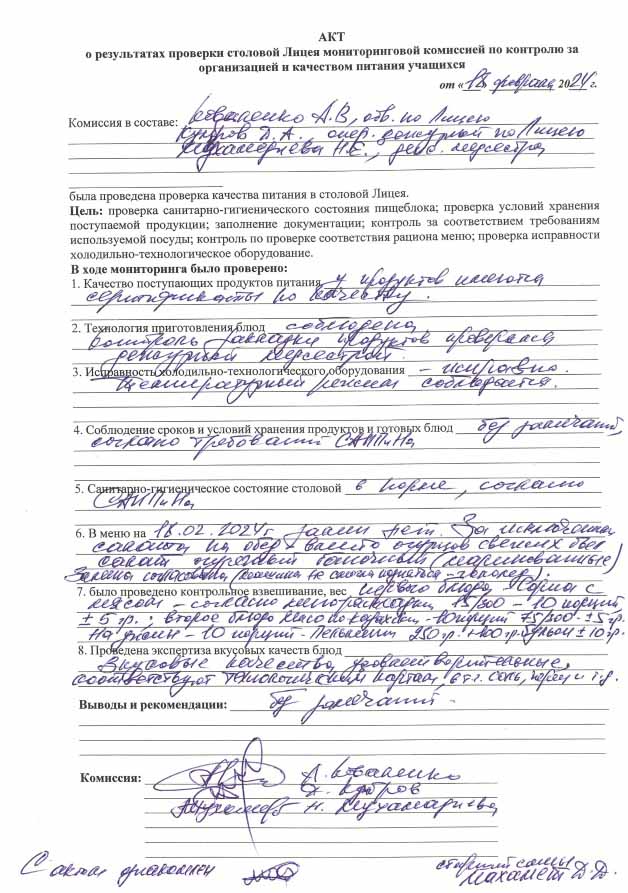 АКТ
о результатах проверки столовой Лицея мониторинговой комиссией по контролю за
организацией и качеством питания учащихся
от « 18 февраля 2024 г.
Комиссия в составе: Коваленко А.В, отв. по Лицею
Д.А., опер. дежурный по Лицею
Мухамадиева Н.Е., деж. медсестра
была проведена проверка качества питания в столовой Лицея.
Цель: проверка санитарно-гигиенического состояния пищеблока; проверка условий хранения
поступаемой продукции; заполнение документации; контроль за соответствием требованиям
используемой посуды; контроль по проверке соответствия рациона меню; проверка исправности
холодильно-технологическое оборудование.
В ходе мониторинга было проверено:
1. Качество поступающих продуктов питания у продуктов имеются
сертификаты по качеству.
2. Технология приготовления блюд соблюдена
контроль закладки продуктов проверялся
дежурным медсестрой.
3. Исправность холодильно-технологического оборудования – исправно.
Температурный режим соблюдается.
4. Соблюдение сроков и условий хранения продуктов и готовых блюд без замечаний,
согласно требований САНПиНа
5. Санитарно-гигиеническое состояние столовой в норме, согласно
САНПиНа
6. В меню на 18.02.2024г замен нет. За исключением
салата на обед – вместо огурцов свежих был
огурцы (маринованные)
Замена согласована
7. было проведено контрольное взвешивание, вес первого блюда
мясом – согласно менораскладки 15/300 – 10 порций
± 5 гр.; второе блюдо мясо по казахски – 10 порций 75/300 ± 5 гр.
На ужин – 10 порций – 250 гр. +100 гр. бульон ± 10 гр.
8. Проведена экспертиза вкусовых качеств блюд
Вкусовые качества удовлетворительные,
соответствуют технологическим картам, в т.г. соль, перец и т.д.
Выводы и рекомендации: без замечаний –
Комиссия: А. Коваленко
Д.
Н. Мухамадиева
С актом ознакомлен
Махамет Д.Д.